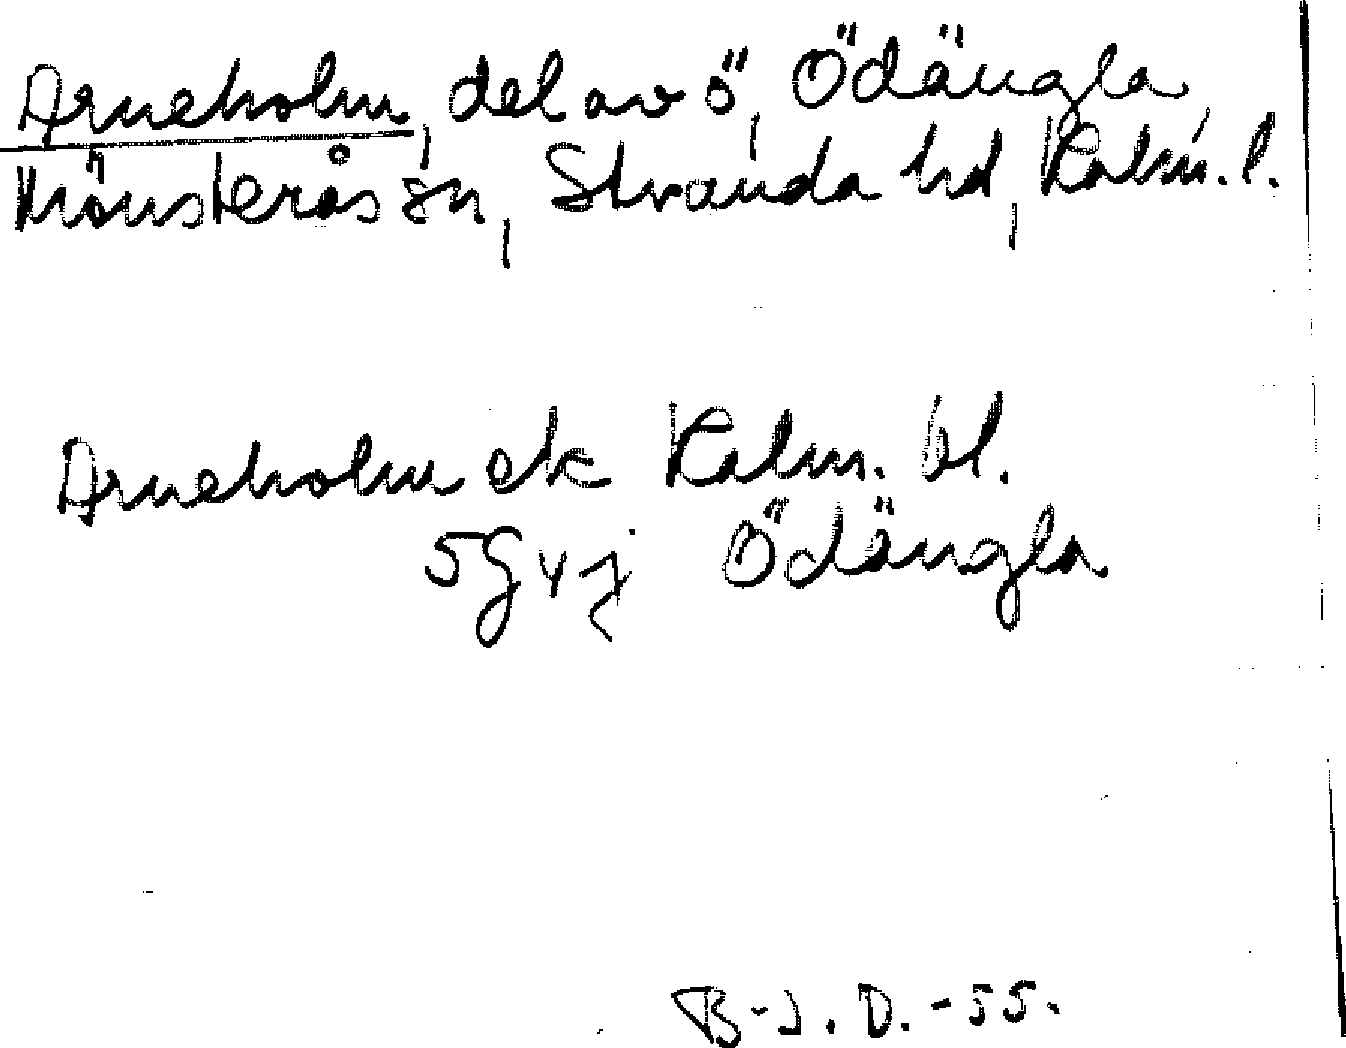 Arneholm, del av ö, Ödängla,
Mönsterås sn, Stranda hd, Kalm. l.
Arneholm ek Kalm. bl.
5G vj Ödängla
B-J. D. -55.